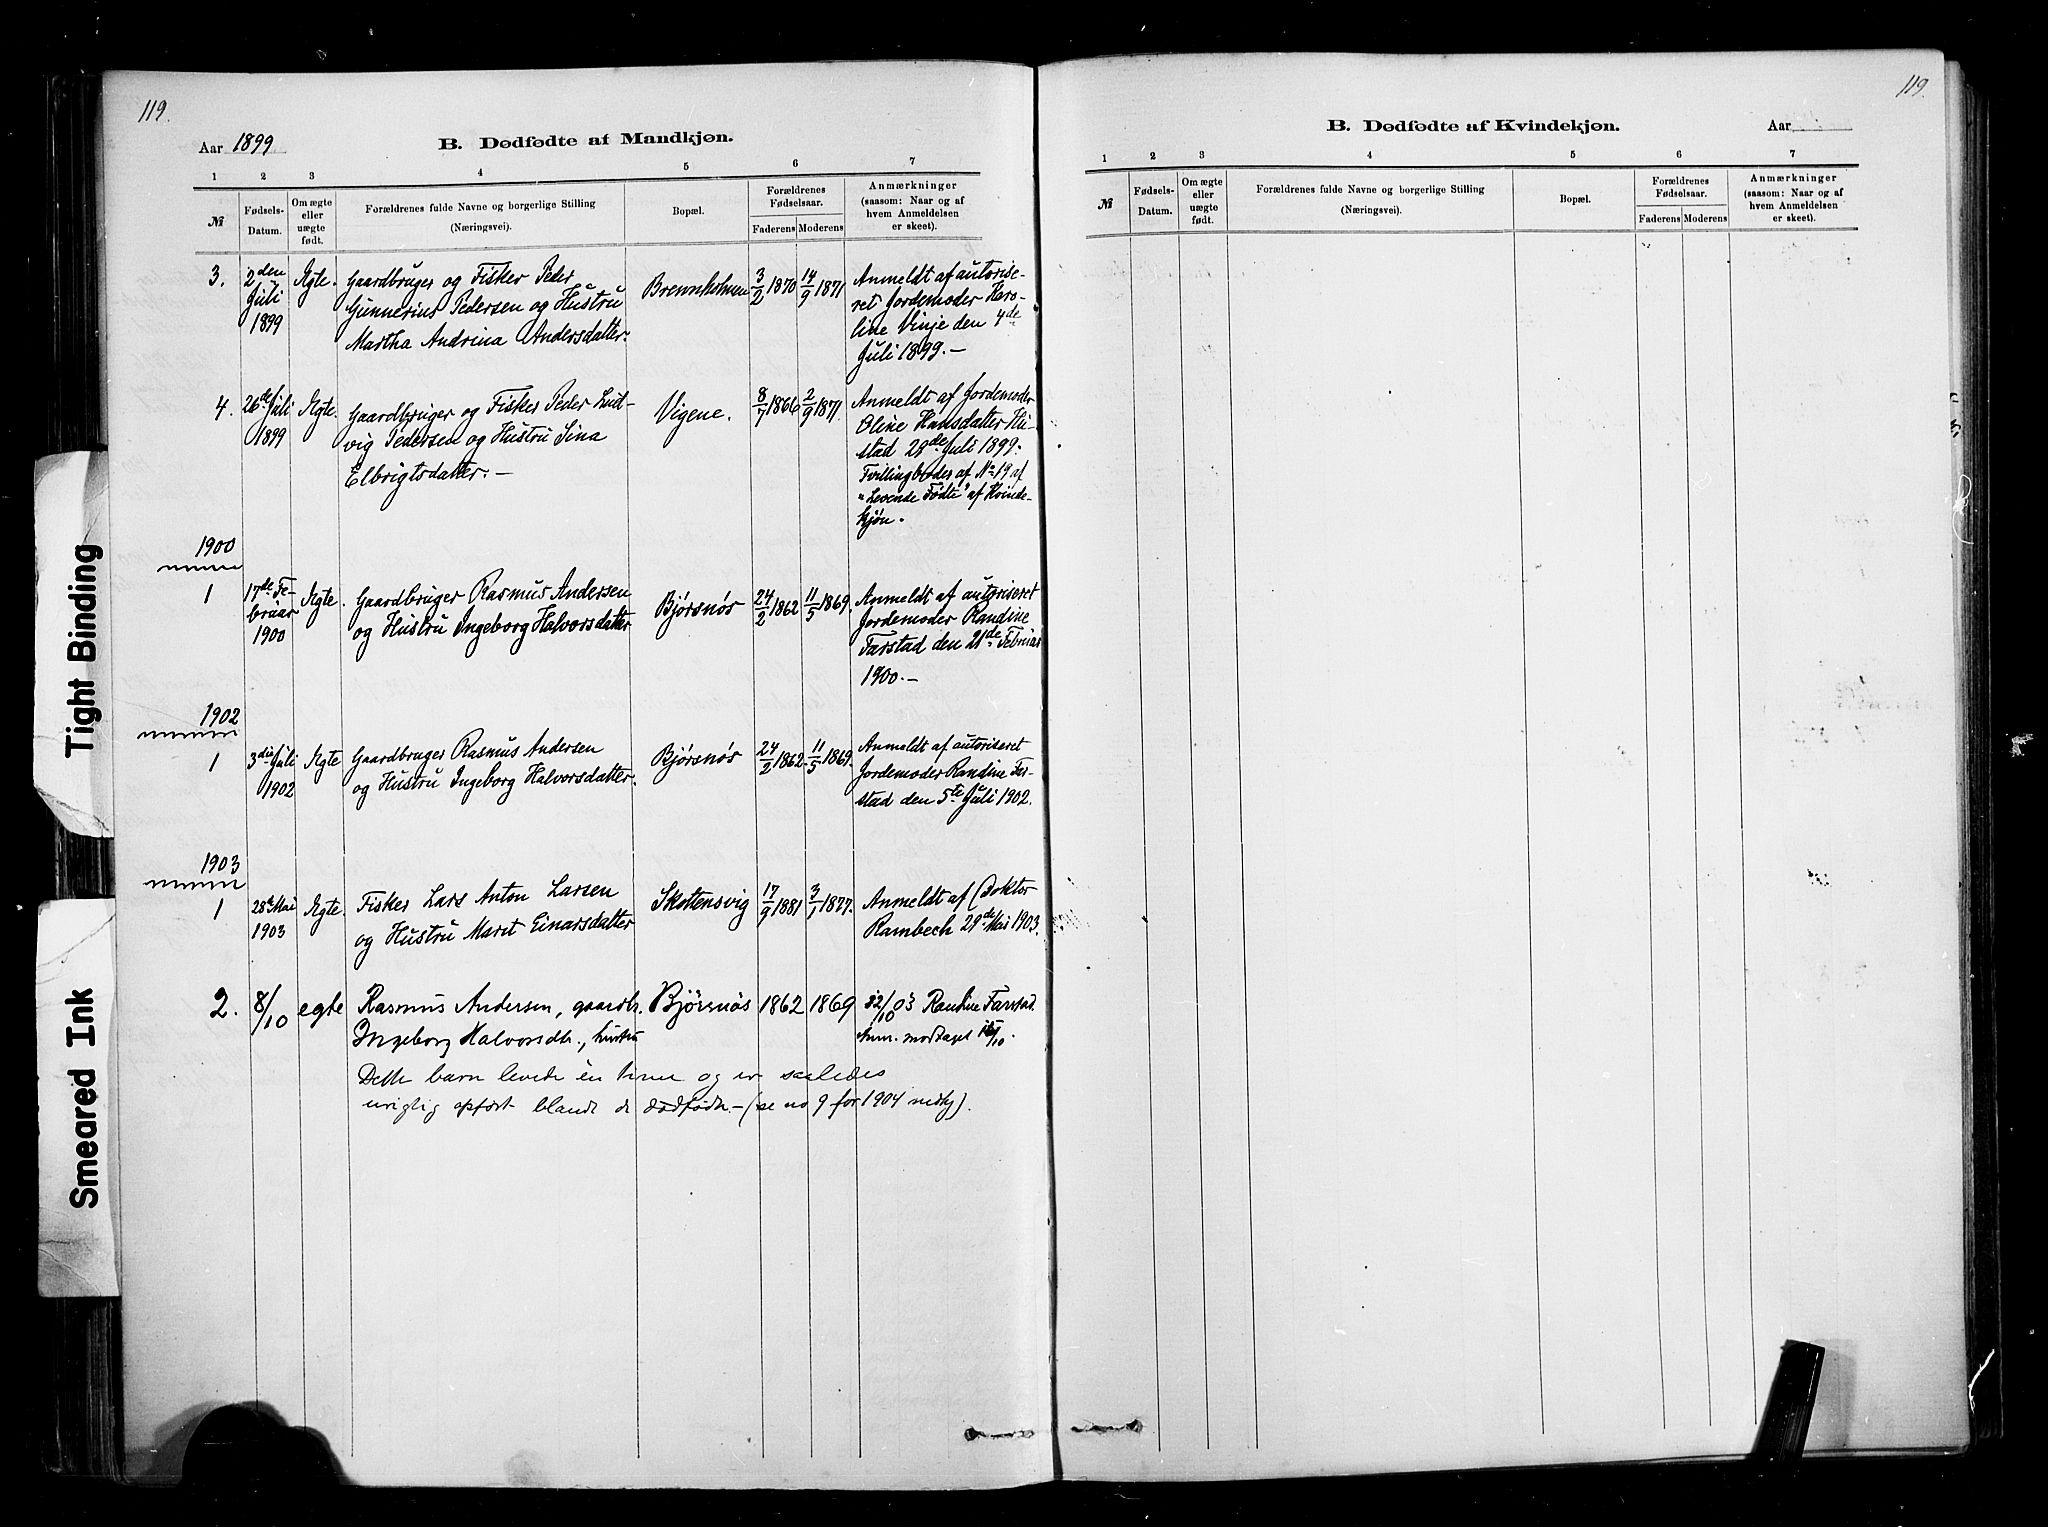 119.
Aar 1899
B. Dødfødte af Mandkjøn.
1 2 3 4 5 6 7
№
Fødsels-
Datum.
Om ægte
eller
uægte
født.
Forældrenes fulde Navne og borgerlige Stilling
(Næringsvei).
Bopæl.
Forældrenes
Fødselsaar.
Faderens Moderens
Anmærkninger
(saasom: Naar og af
hvem Anmeldelsen
er skeet).
3.
2den
Juli
1899
Ægte.
Gaardbruger og Fisker Peder
Gunnerius Pedersen og Hustru
Martha Andrina Andersdatter.
Brennholmen
3/2 1870
14/9 1871
Anmeldt af autorise-
ret Jordemoder Karo-
line Vinje den 4de
Juli 1899.—
4.
26de Juli
1899
Ægte.
Gaardbruger og Fisker Peder Lud-
vig Pedersen og Hustru Sina
Elbrigtsdatter.—
Vigene.
8/7 1866
2/9 1871.
Anmeldt af Jordemoder
Oline Hansdatter Hu-
stad 28de Juli 1899.
Tvillingbroder af No 19 af
"Levende Fødte" af Kvinde-
kjøn.
1900
1
17de Fe-
bruar
1900
Ægte.
Gaardbruger Rasmus Andersen
og Hustru Ingeborg Halvorsdatter
Bjørsnøs
24/2 1862
11/5 1869.
Anmeldt af autoriseret
Jordemoder Randine
Farstad den 21de Februar
1900.—
1902
1
3die Juli
1902
Ægte
Gaardbruger Rasmus Andersen
og Hustru Ingeborg Halvorsdatter.
Bjørsnøs
24/2 1862.
11/5 1869.
Anmeldt af autoriseret
Jordemoder Randine Far-
stad den 5te Juli 1902.
1903
1
28de Mai
1903
Ægte.
Fisker Lars Anton Larsen
og Hustru Marit Einarsdatter
Skottensvig
17/9 1881
3/1 1877.
Anmeldt af Doktor
Rambech 29de Mai 1903.
2.
8/10
egte
Rasmus Andersen, gaardbr.
Ingeborg Halvorsdtr., hustru
Bjørsnøs
1862
1869
12/10 03 Randine Farstad.
Anm. modtaget
Dette barn levede en time og er saaledes
urigtig opført blandt de dødfødte.— (se no 9 for 1904 mdkj).
119.
B. Dødfødte af Kvindekjøn.
Aar
1 2 3 4 5 6 7
№
Fødsels-
Datum.
Om ægte
eller
uægte
født.
Forældrenes fulde Navne og borgerlige Stilling
(Næringsvei).
Bopæl.
Forældrenes
Fødselsaar.
Faderens Moderens
Anmærkninger
(saasom: Naar og af
hvem Anmeldelsen
er skeet).
Tight Binding
Smeared Ink